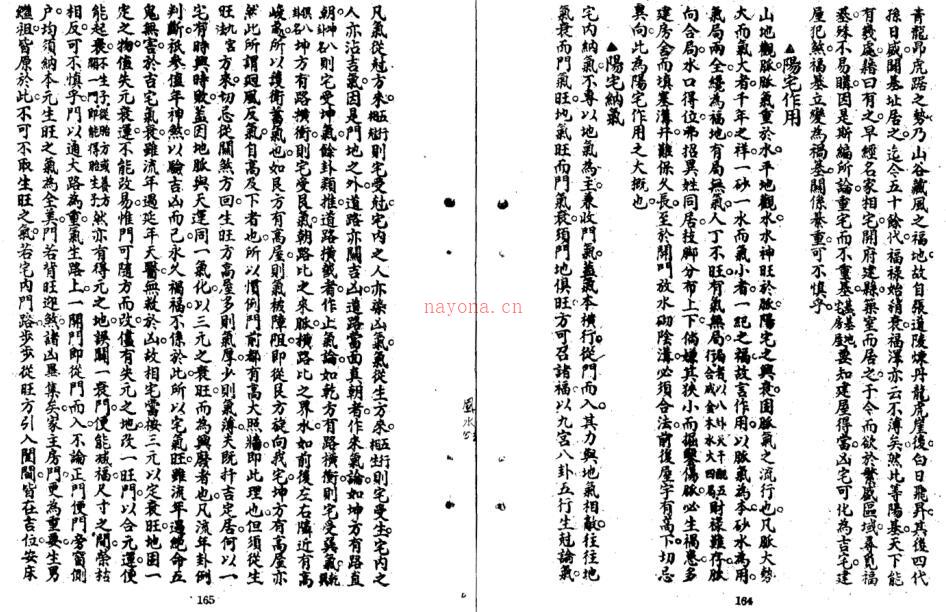 青龍昂虎踞之勢乃山谷藏風之福地故自張道陵煉丹龍虎崖後白日飛昇其後四代
孫日盛開基址居之迄今五十餘代福祿始稍衰福澤亦云不薄矣然此等陽基天下能
有幾處籍曰有之早經名家相宅開府建縣築室而居之于今而欲於繁盛區域尋覓福
基殊不易購因是斯編所論重宅而不重基要知建屋得當凶宅可化為吉宅建
屋犯煞福基立變為禍基關係綦重可不慎乎
▲陽宅作用
山地觀脉脉氣重於水平地觀水水神旺於脉陽宅之興衰因脉氣之流行也凡脉大勢
大而氣大者千年之祥一砂一水而氣小者一紀之福故言作用以脉氣為本砂水為用
氣局兩全纔為福地有局無氣人丁不旺有氣無局財祿難存脉
向合局水口得位弗招異姓同居技脚分布上下倘嫌其狹小而掘鑿傷脉必生禍患多
建房舍而填塞溝井難保久長至於開門放水砌陰溝必須合法前後屋宇有高下切忌
異向此為陽宅作用之大概也
▲陽宅納氣
宅內納氣不專以地氣為主兼收門氣蓋氣本橫行從門而入其力與地氣相敵往往地
氣衰而門氣旺地氣旺而門氣衰須門地俱旺方可召諸福以九宮八卦五行生尅論氣
164
風水
凡氣從尅方來則宅受尅宅內之人亦染凶氣氣從生方來則宅受生宅內之
人亦沾吉氣因是門地之外道路亦關吉凶道路當面真朝者作來氣論如坤方有路直
朝則宅受坤氣餘卦類推道路橫截者作止氣論如乾方有路橫衝則宅受巽氣
坤方有路橫衝則宅受艮氣朝路比之來脉橫路比之界水如前後左右隣近有高
峻處所以護衛蓄氣也如艮方有高屋則氣被障阻即從艮方旋向我宅坤方有高屋亦
然此所謂迴風反氣自高反下者也所以慣例門前都有高大照牆即此理也但須從生
旺宮方來切忌從關煞方回生旺方高屋多則氣厚少則氣薄夫既扦吉定居何以一
宅有時興時敗蓋因地脉與天運同一氣化以三元之衰旺而為興廢者也凡流年卦例
判斷祇參值年神煞以驗吉凶而已永久禍福不係於此所以宅氣旺雖流年遇絕命五
鬼無害於吉宅氣衰雖流年遇延年天醫無救於凶故相宅當按三元以定衰旺地固一
定之物值失元衰運不能改易惟門可隨方而改僅有失元之地改一旺門以合元運便
能起衰亦有得元之地誤開一衰門便能減福尺寸之間榮枯
相反可不慎乎門以通大路為重氣生路上一開門即從門而入不論正門便門旁窗側
戶均須納本元生旺之氣為全美門若背旺迎煞諸凶畢集矣家主房門更為重要生男
繼祖皆原於此不可不取生旺之氣若宅內門路步步從旺方引入閨闥皆在吉位安床
165
nayona.cn